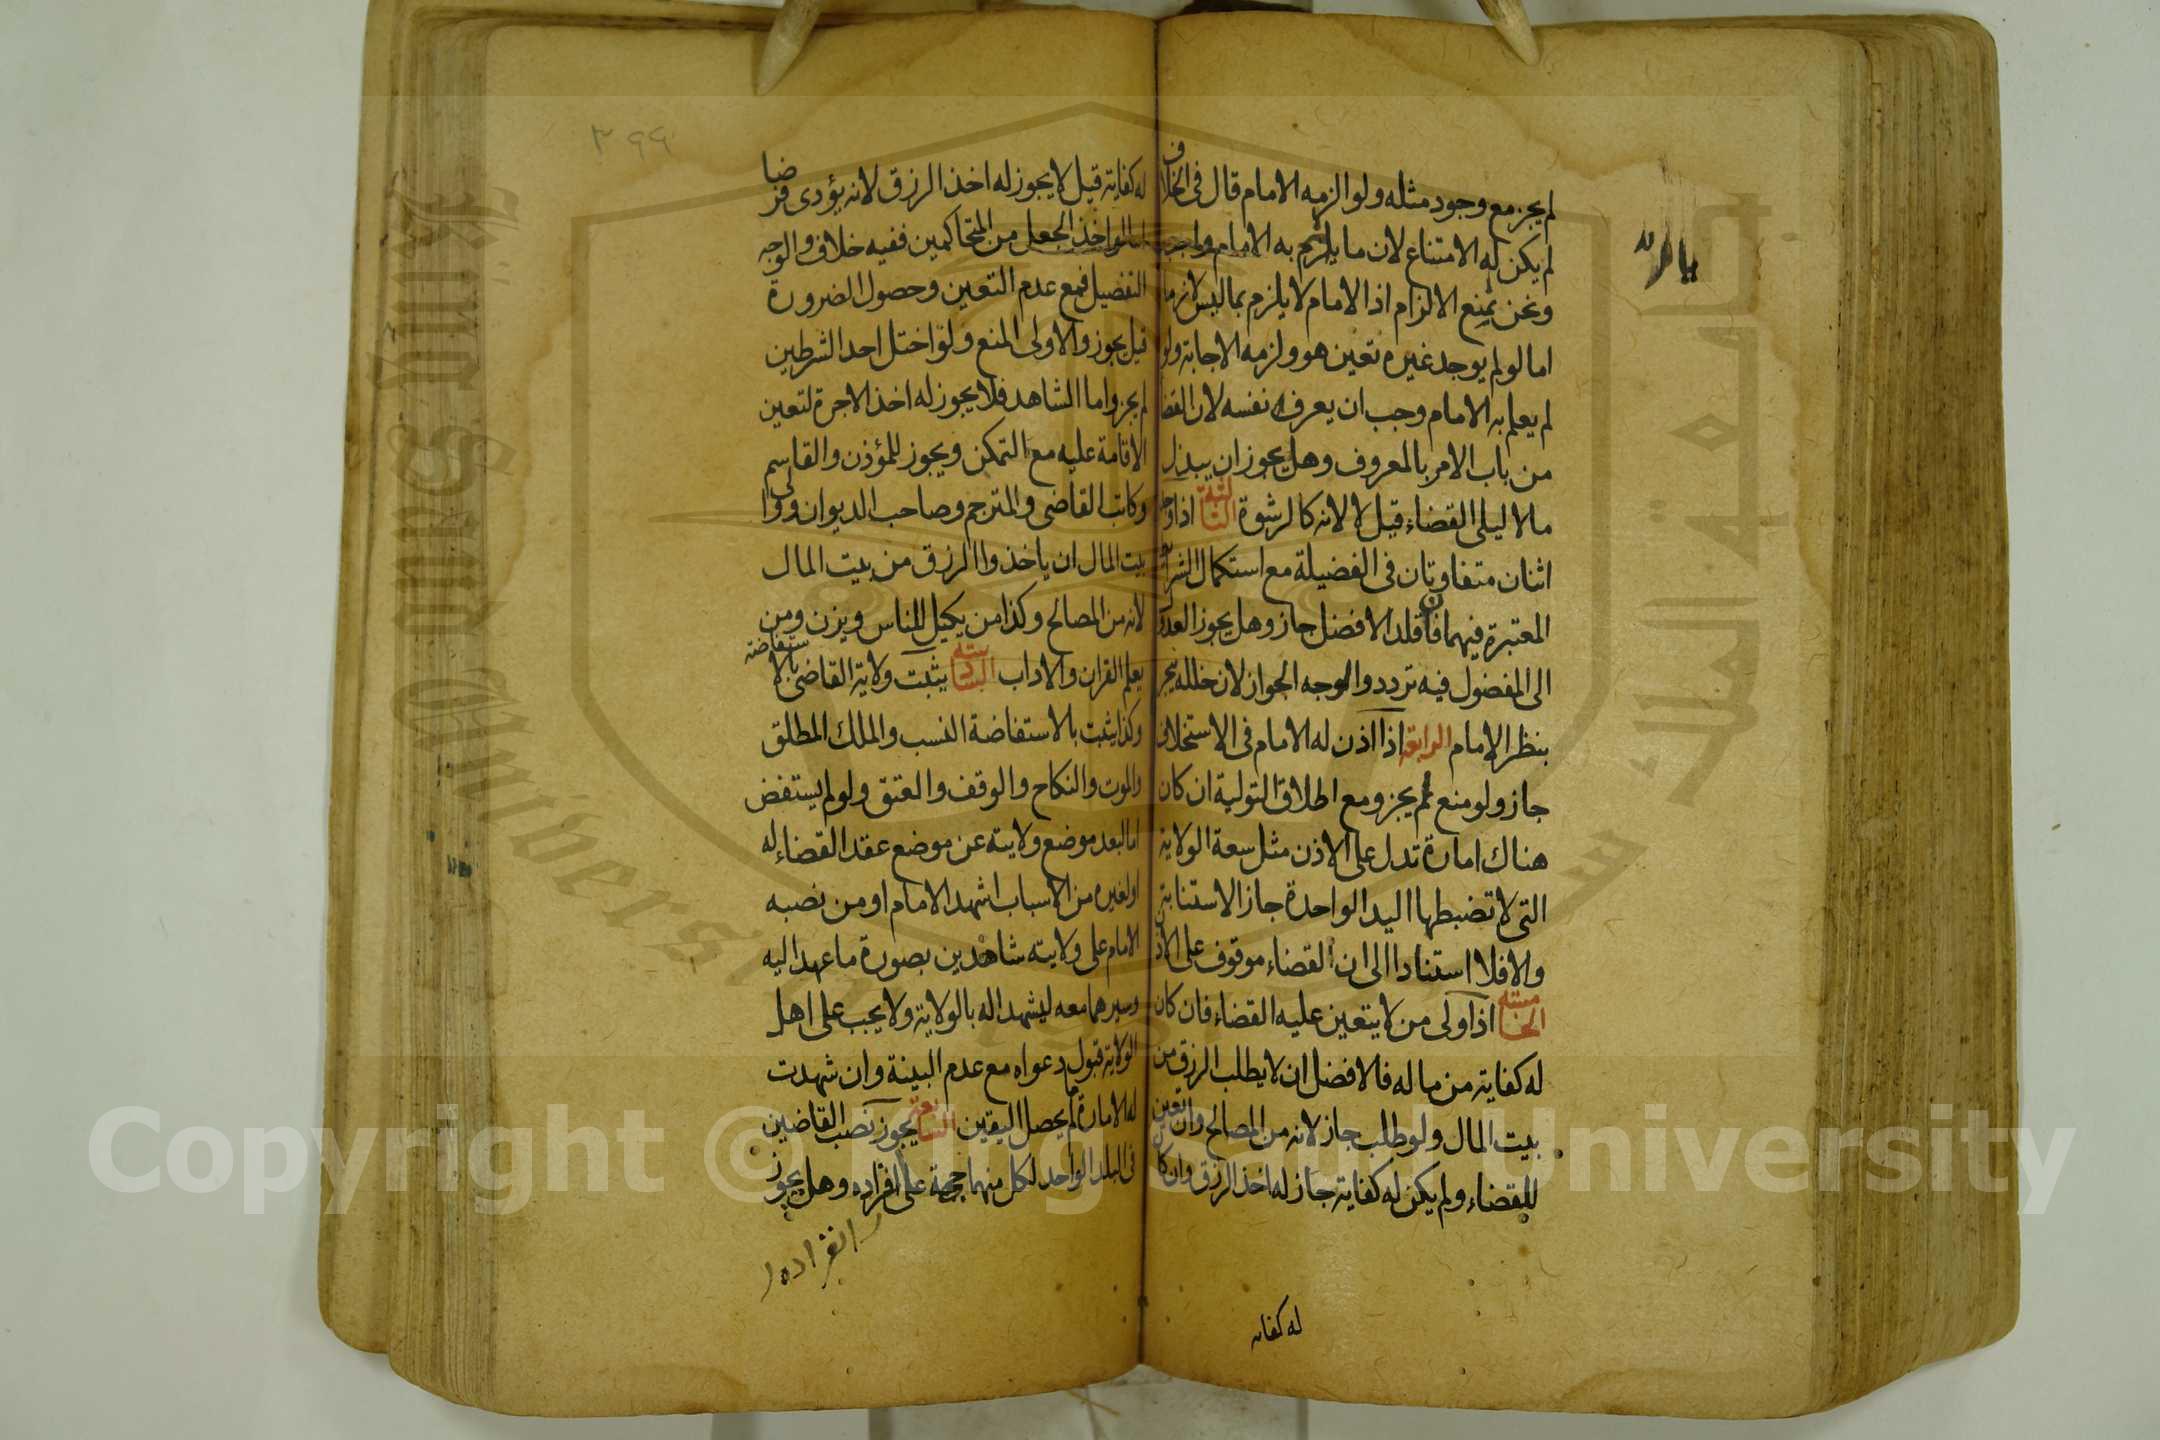 لم يجز مع وجود مثله ولو الزمه الامام قال في الخلاف
لم يكن له الامتناع لان ما يلزم به الامام واجب
ونحن نمنع الالزام اذ الامام لا يلزم بما ليس لازما
اما لو لم يوجد غيره تعين هو ولزمه الاجابة ولو
لم يعلم به الامام وجب ان يعرفه نفسه لان القضا
من باب الامر بالمعروف وهل يجوز ان يبذل
مالا ليلي القضاء قيل لا لانه كالرشوة الثالثة اذا وجد
اثنان متفاوتان في الفضيلة مع استكمال الشرائط
المعتبرة فيهما فان قلد الافضل جاز وهل يجوز العدول
الى المفضول فيه تردد والوجه الجواز لان خلله ينجبر
بنظر الامام الرابعة اذا اذن له الامام في الاستخلاف
جاز ولو منع لم يجز ومع اطلاق التولية ان كان
هناك امارة تدل على الاذن مثل سعة الولاية
التي لا تضبطها اليد الواحدة جاز الاستنابة
والا فلا استنادا الى ان القضاء موقوف على الاذن
الخامسة اذا ولى من لا يتعين عليه القضاء فان كان
له كفاية من ماله فالافضل ان لا يطلب الرزق من
بيت المال ولو طلب جاز لانه من المصالح وان تعين
للقضاء ولم يكن له كفاية جاز له اخذ الرزق وان كان
له كفاية
له كفاية قيل لا يجوز له اخذ الرزق لانه يؤدى فرضا
اما لو اخذ الجعل من المتحاكمين ففيه خلاف والوجه
التفصيل فمع عدم التعين وحصول الضرورة
قيل يجوز والاولى المنع ولو اختل احد الشرطين
لم يجز واما الشاهد فلا يجوز له اخذ الاجرة لتعين
الاقامة عليه مع التمكن ويجوز للمؤذن والقاسم
وكاتب القاضي والمترجم وصاحب الديوان ووالى
بيت المال ان ياخذوا الرزق من بيت المال
لانه من المصالح وكذا من يكيل للناس ويزن ومن
يعلم القران والاداب السادسة يثبت ولاية القاضي بالاستفاضة
وكذا يثبت بالاستفاضة النسب والملك المطلق
والموت والنكاح والوقف والعتق ولو لم يستفض
اما لبعد موضع ولايته عن موضع عقد القضاء له
او لغيره من الاسباب اشهد الامام او من نصبه
الامام على ولايته شاهدين بصورة ما عهد اليه
وسيرهما معه ليشهدا له بالولاية ولا يجب على اهل
الولاية قبول دعواه مع عدم البينة وان شهدت
له الامارة ما لم يحصل اليقين السابعة يجوز نصب القاضيين
في البلد الواحد لكل منهما جهة على افراده وهل يجوز
انفراده
٣٩٩
Copyright © King Saud University
King Saud University
جامعة الملك سعود